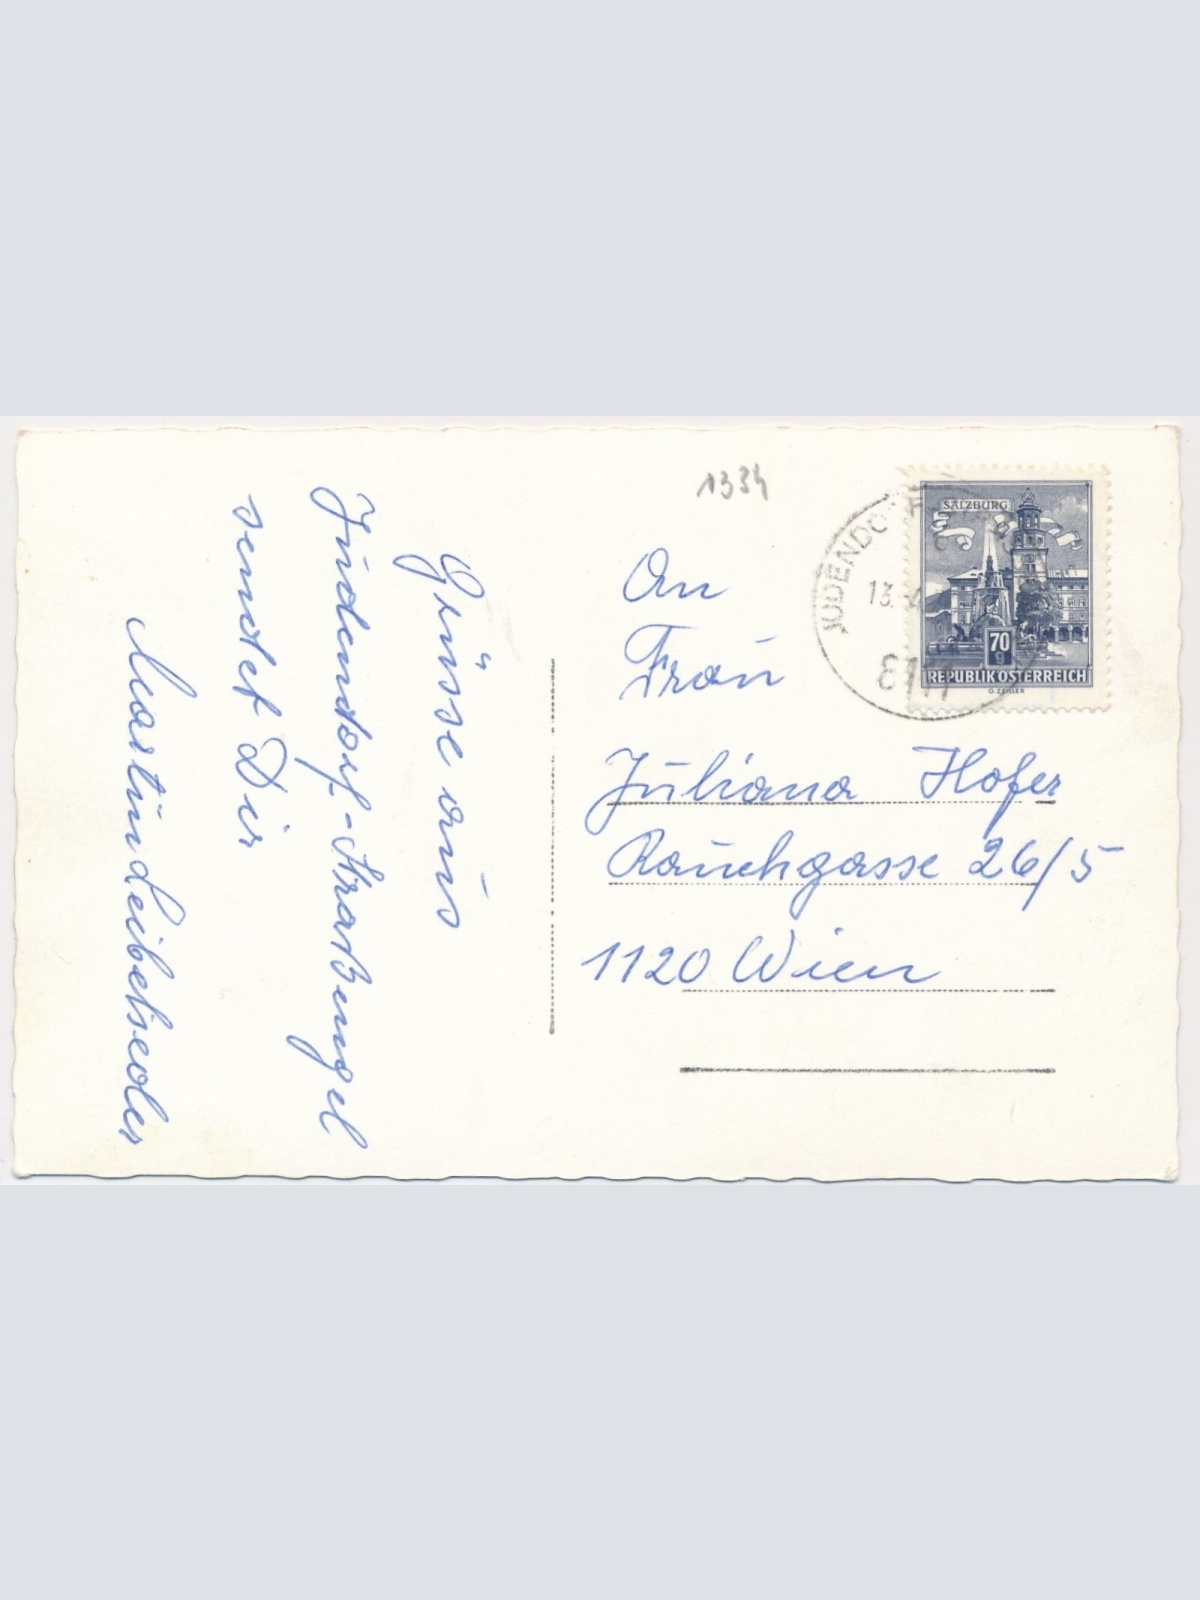 Grüsse aus
Judendorf-Straßengel
sendet Dir
Martin Leibetseder
1334
An
Frau
Juliana Hofer
Rauchgasse 26/5
1120 Wien
JUDENDO
13.
SALZBURG
70
g
REPUBLIK ÖSTERREICH
O. ZEILLER